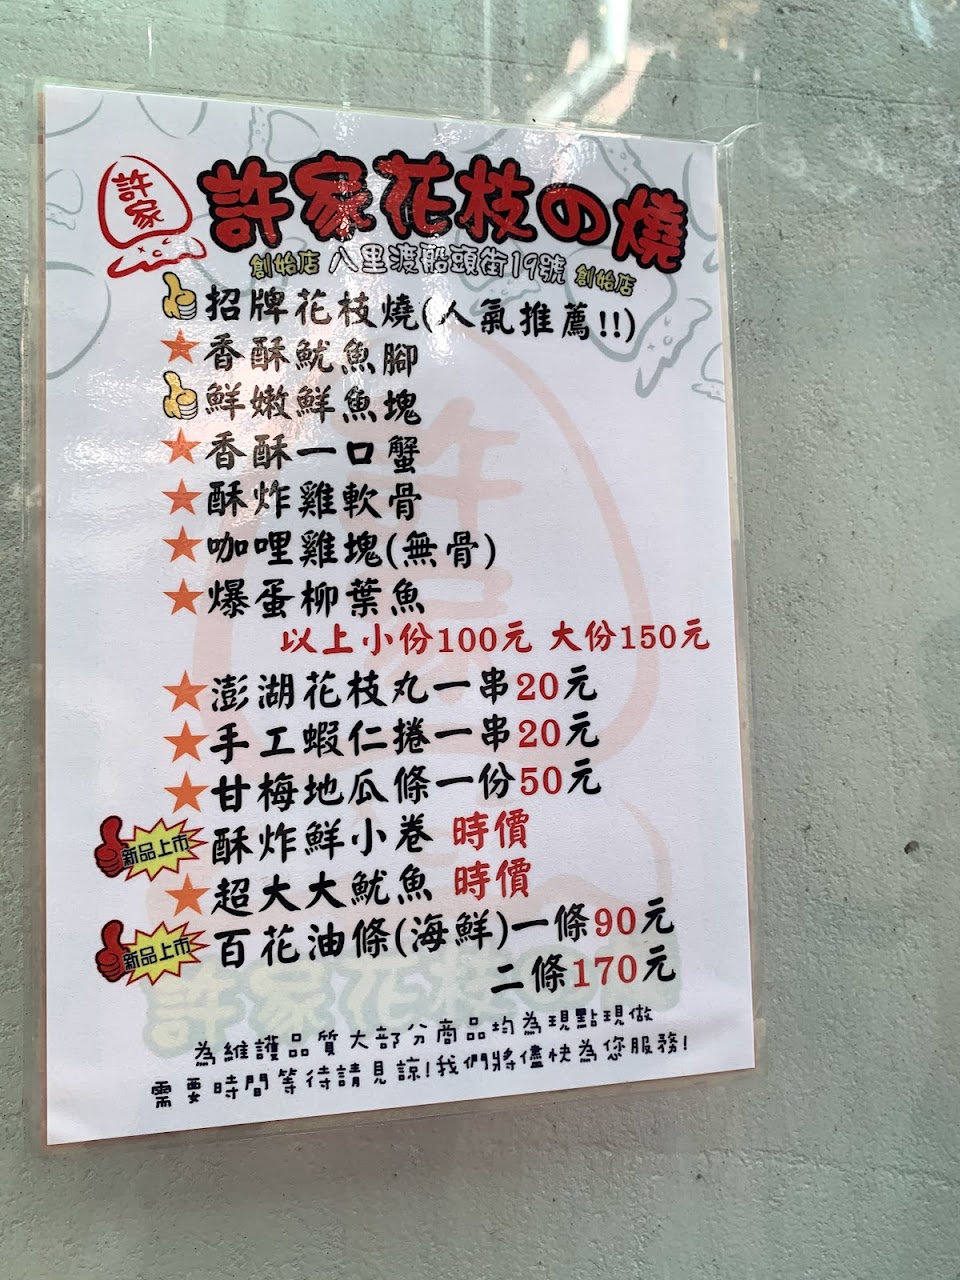 許家
許家花枝の燒
創始店 八里渡船頭街19號 創始店
招牌花枝燒(人氣推薦!!)
香酥魷魚腳
鮮嫩鮮魚塊
香酥一口蟹
酥炸雞軟骨
咖哩雞塊(無骨)
爆蛋柳葉魚
以上小份100元 大份150元
澎湖花枝丸一串20元
手工蝦仁捲一串20元
甘梅地瓜條一份50元
新品上市 酥炸鮮小卷 時價
超大大魷魚 時價
新品上市 百花油條(海鮮)一條90元
二條170元
許家花枝の燒
為維護品質大部分商品均為現點現做
需要時間等待請見諒!我們將儘快為您服務!